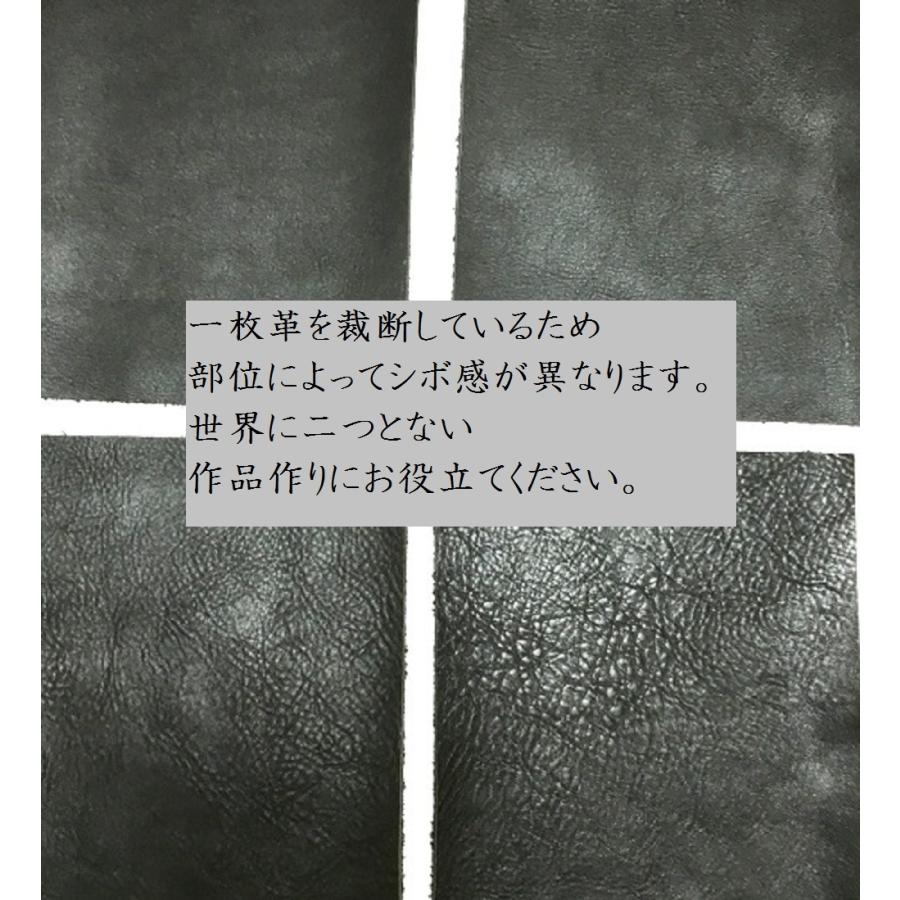 一枚革を裁断しているため
部位によってシボ感が異なります。
世界に二つとない
作品作りにお役立てください。